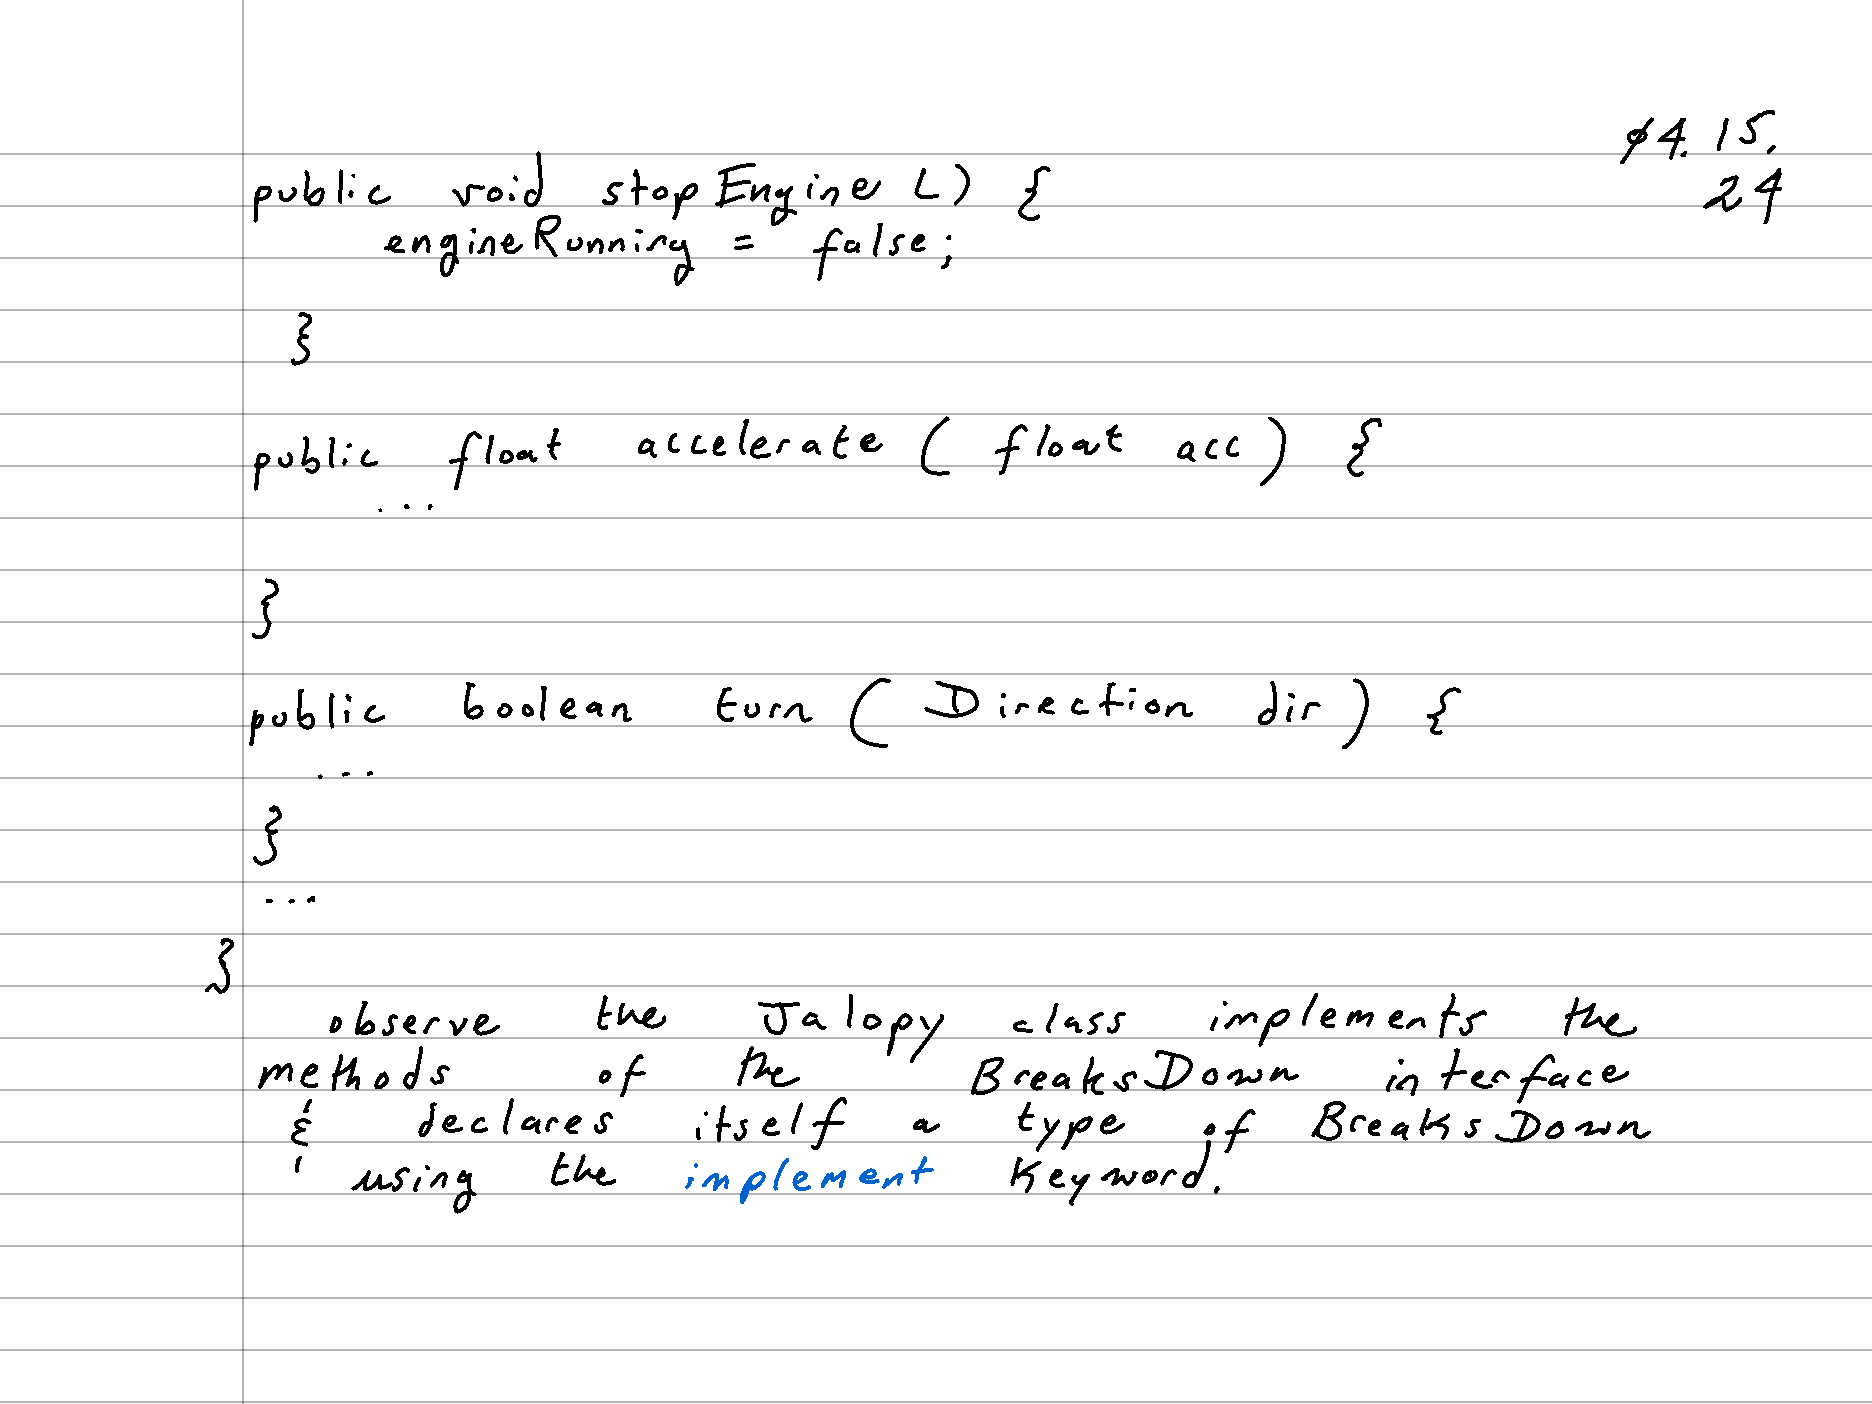 ø4. 15.
24
public void stopEngine () {
engineRunning = false;
}
public float accelerate ( float acc ) {
...
}
public boolean turn ( Direction dir ) {
...
}
...
}
observe the Jalopy class implements the
methods of the BreaksDown interface
& declares itself a type of BreaksDown
using the implement keyword.